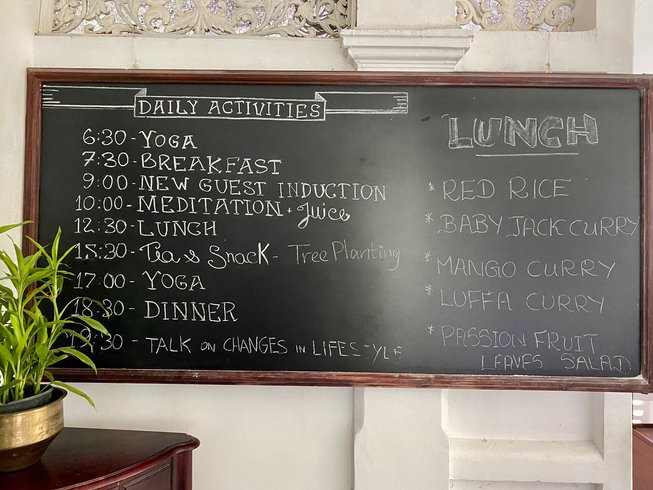 DAILY ACTIVITIES
6:30 - YOGA
7:30 - BREAKFAST
9:00 - NEW GUEST INDUCTION
10:00 - MEDITATION + Juice
12:30 - LUNCH
15:30 - Tea & Snack - Tree Planting
17:00 - YOGA
18:30 - DINNER
19:30 - TALK ON CHANGES IN LIFESTYLE
LUNCH
* RED RICE
* BABY JACK CURRY
* MANGO CURRY
* LUFFA CURRY
* PASSION FRUIT
LEAVES SALAD